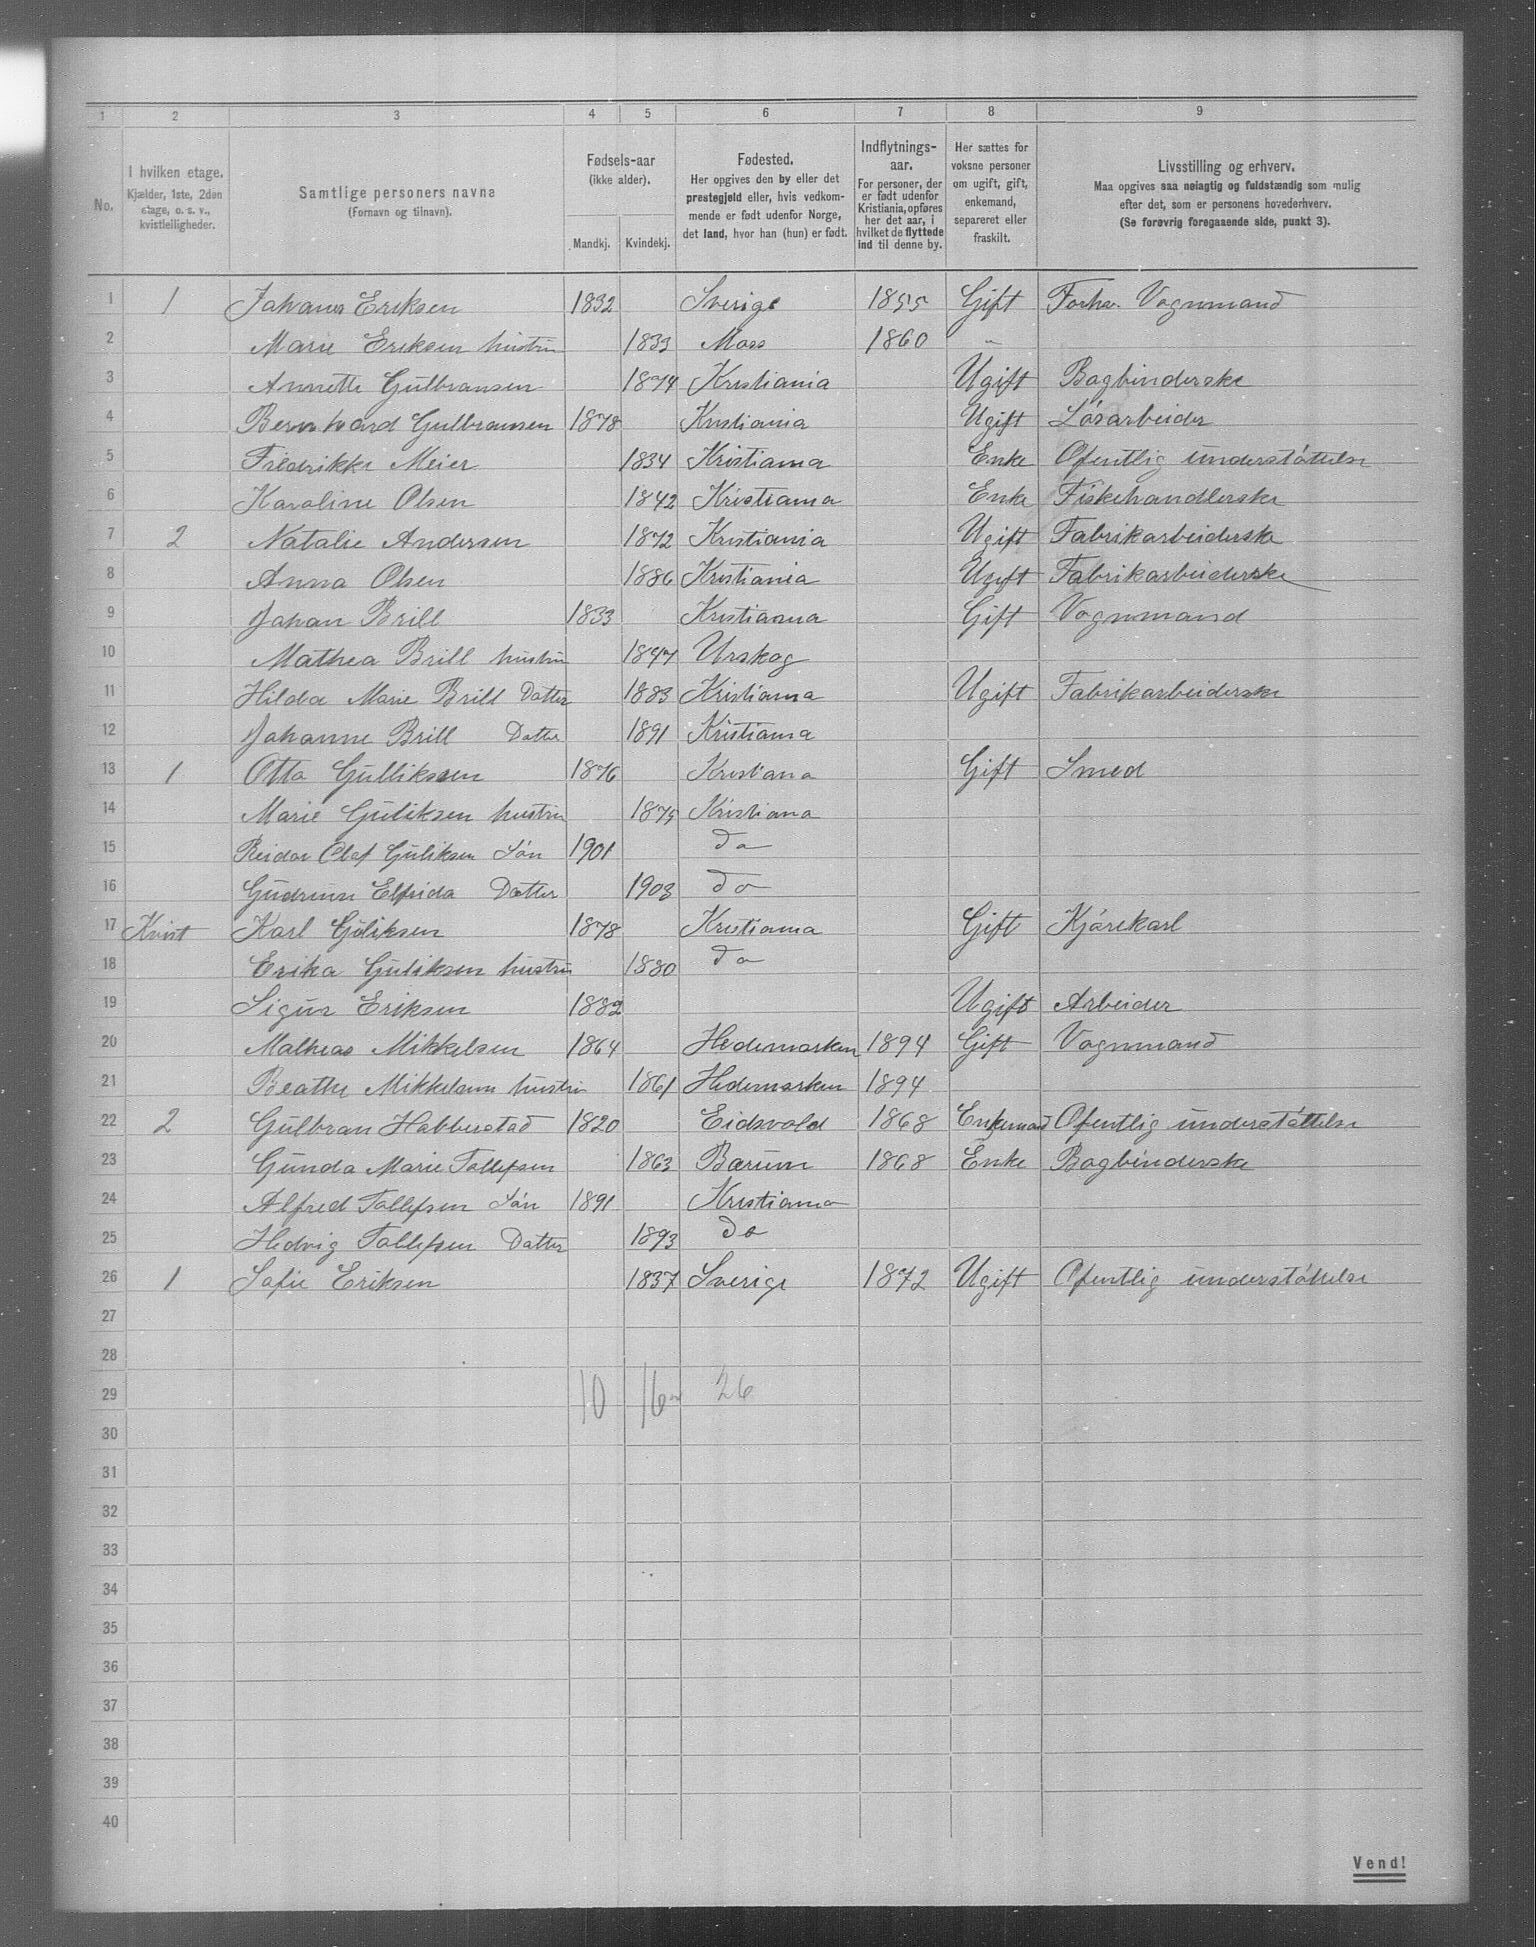 1 2 3 4 5 6 7 8 9
No.
I hvilken etage.
Kjælder, 1ste, 2den
etage, o. s. v.,
kvistleiligheder.
Samtlige personers navne
(Fornavn og tilnavn).
Fødsels-aar
(ikke alder).
Mandkj. Kvindekj.
Fødested.
Her opgives den by eller det
prestegjeld eller, hvis vedkom-
mende er født udenfor Norge,
det land, hvor han (hun) er født.
Indflytnings-
aar.
For personer, der
er født udenfor
Kristiania, opføres
her det aar, i
hvilket de flyttede
ind til denne by.
Her sættes for
voksne personer
om ugift, gift,
enkemand,
separeret eller
fraskilt.
Livsstilling og erhverv.
Maa opgives saa nøiagtig og fuldstændig som mulig
efter det, som er personens hovederhverv.
(Se forøvrig foregaaende side, punkt 3).
1 1 Johanes Eriksen 1832 Sverige 1855 Gift Forhv. Vognmand
2 Marie Eriksen hustru 1833 Moss 1860 "
3 Annette Gulbransen 1874 Kristiania Ugift Bogbinderske
4 Bernhard Gulbransen 1878 Kristiania Ugift Løsarbeider
5 Fredrikke Meier 1834 Kristiania Enke Ofentlig understøttelse
6 Karoline Olsen 1842 Kristiania Enke Fiskehandlerske
7 2 Natalie Andersen 1872 Kristiania Ugift Fabrikarbeiderske
8 Anna Olsen 1886 Kristiania Ugift Fabrikarbeiderske
9 Johan Brill 1833 Kristiania Gift Vognmand
10 Mathea Brill hustru 1847 Urskog
11 Hilda Marie Brill Datter 1883 Kristiania Ugift Fabrikarbeiderske
12 Johanne Brill Datter 1891 Kristiania
13 1 Otto Gulliksen 1876 Kristiana Gift Smed
14 Marie Guliksen hustru 1875 Kristiana
15 Reidar Olaf Guliksen Søn 1901 do
16 Gudrun Elfrida Datter 1903 do
17 Kvist Karl Guliksen 1878 Kristiania Gift Kjørekarl
18 Erika Guliksen hustru 1880 do
19 Sigur Eriksen 1882 Ugift Arbeider
20 Matheas Mikkelsen 1864 Hedemarken 1894 Gift Vognmand
21 Beathe Mikkelsen hustru 1861 Hedemarken 1894
22 2 Gulbran Habberstad 1820 Eidsvold 1868 Enkemand Ofentlig understøttelse
23 Gunda Marie Tollefsen 1863 Bærum 1868 Enke Bogbinderske
24 Alfred Tollefsen Søn 1891 Kristiania
25 Hedvig Tollefsen Datter 1893 do
26 1 Sofie Eriksen 1837 Sverige 1872 Ugift Ofentlig understøttelse
27
28
29 10 16 26
30
31
32
33
34
35
36
37
38
39
40
Vend!